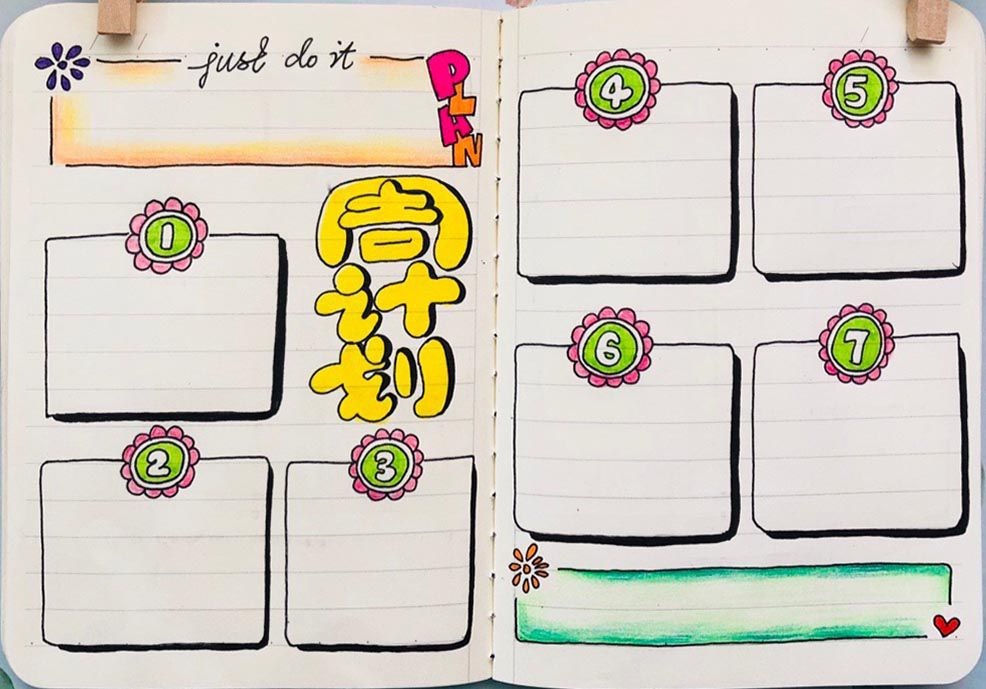 just do it
PLAN
周
计
划
1
2
3
4
5
6
7